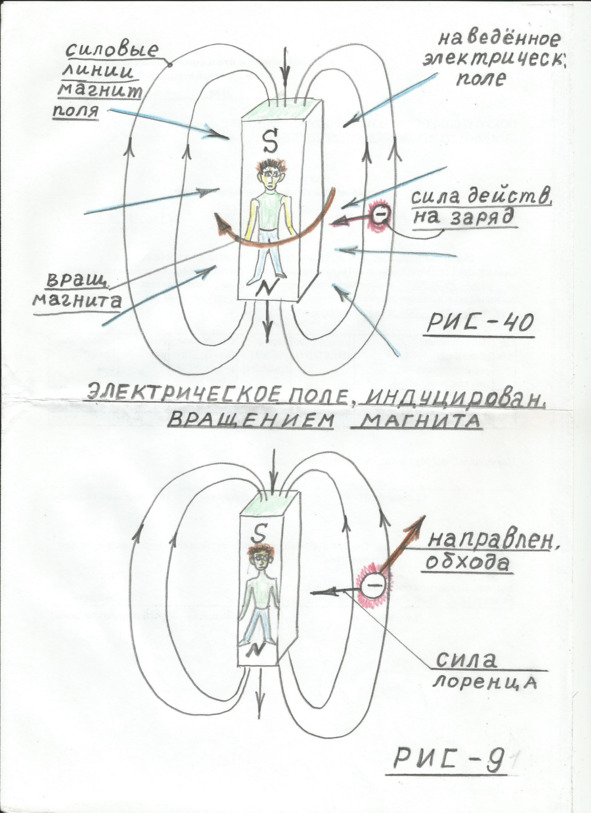 силовые
линии
магнит
поля
наведённое
электрическ.
поле
S
сила действ.
на заряд
вращ
магнита
N
РИС-40
ЭЛЕКТРИЧЕСКОЕ ПОЛЕ, ИНДУЦИРОВАН.
ВРАЩЕНИЕМ МАГНИТА
S
направлен.
обхода
N
сила
лоренца
РИС-9